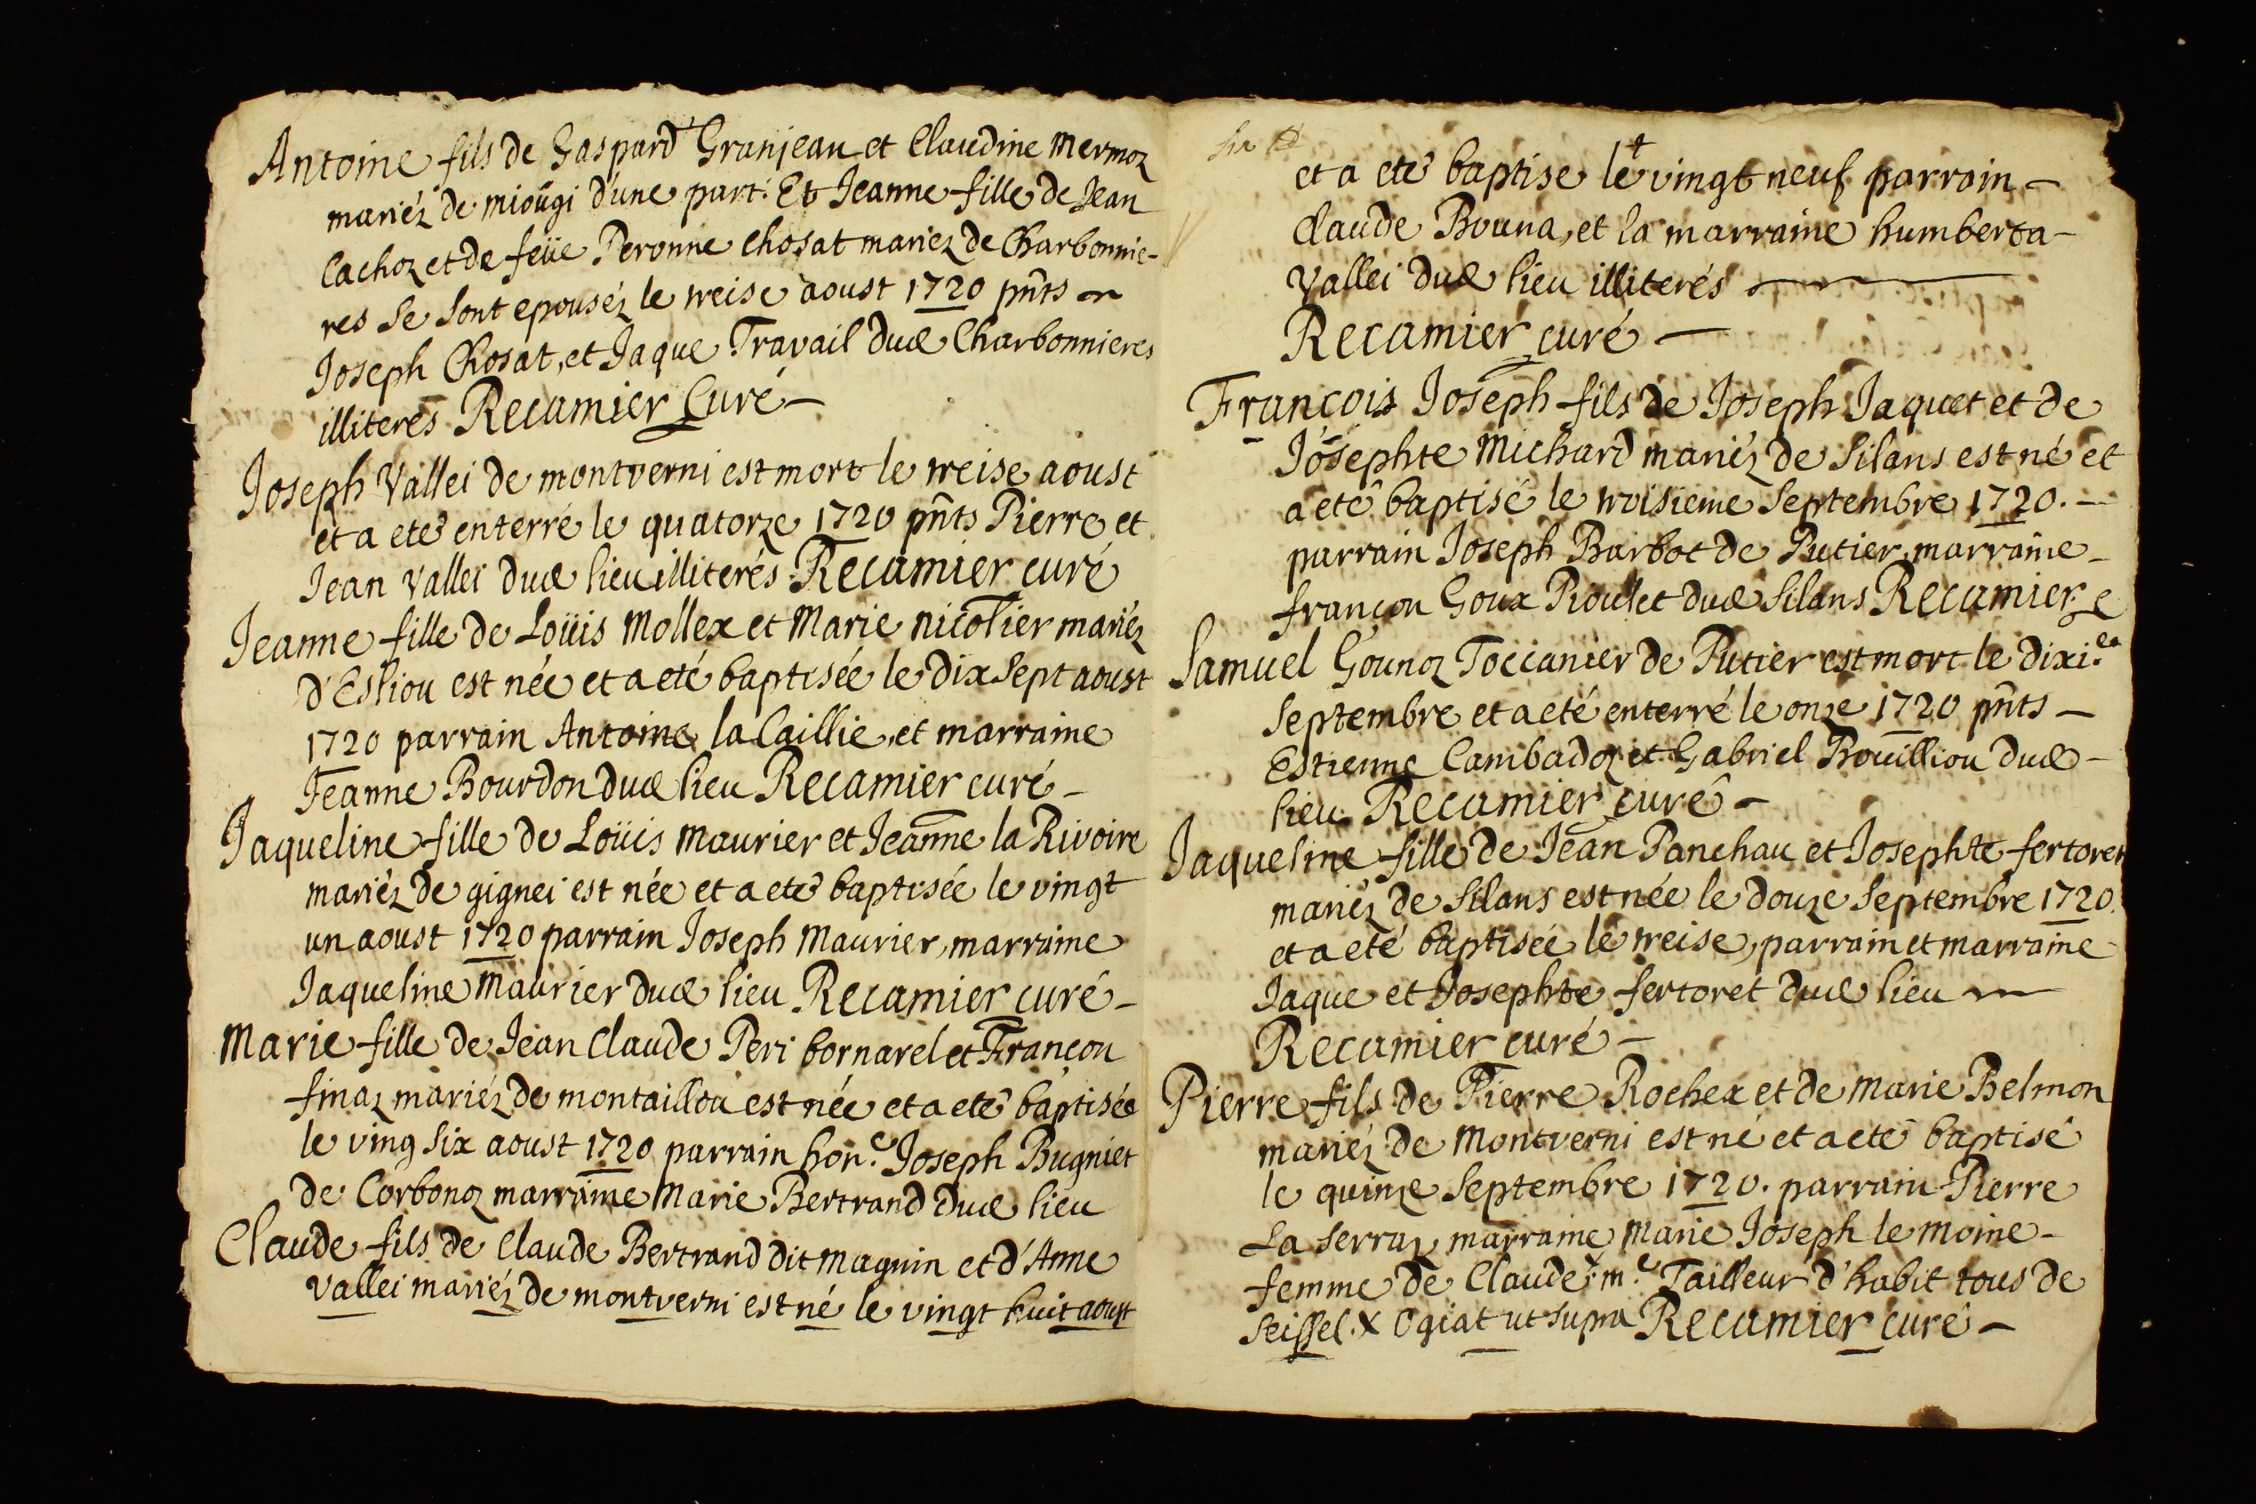 Antoine fils de Gaspard Granjean et Claudine mermoz
mariéz de miougi d'une part. Et Jeanne fille de Jean
Cachoz et de feüe Peronne Chosat mariez de Charbonnie-
res se sont epouséz le treise aoust 1720 pnts
Joseph Chosat, et Jaque Travail dud Charbonnieres
illiterés Recamier Curé
Joseph Vallei de montverni est mort le treise aoust
et a eté enterré le quatorze 1720 pnts Pierre et
Jean Vallei dud lieu illiterés Recamier curé
Jeanne fille de Loüis Mollex et Marie nicolier mariéz
d'Esliou est née et a eté baptisée le dix sept aoust
1720 parrain Antoine la Caillie, et marraine
Jeanne Bourdon dud lieu Recamier curé
Jaqueline fille de Loüis maurier et Jeanne la Rivoire
mariéz de gignei est née et a eté baptisée le vingt
un aoust 1720 parrain Joseph maurier, marraine
Jaqueline maurier dud lieu Recamier curé
Marie fille de Jean Claude Peri bornarel et Françon
finaz mariéz de montaillou est née et a eté baptisée
le ving six aoust 1720 parrain hon.e Joseph Bugniet
de Corbonoz marraine Marie Bertrand dud lieu
Claude fils de Claude Bertrand dit magnin et d'Anne
Vallei mariéz de montverni est né le vingt huit aoust
et a eté baptise le vingt neuf parrain
Claude Bouna, et la marraine humberta
Vallei dud lieu illiterés
Recamier curé
François Joseph fils de Joseph Jaquet et de
Josephte Michard mariéz de Silans est né et
a eté baptisé le troisieme Septembre 1720.
parrain Joseph Barbot de Putier, marraine
françon Goux Pioulet dud Silans Recamier c
Samuel Gounoz Toccanier de Putier est mort le dixi.e
Septembre et a eté enterré le onze 1720 pnts
Estienne Cambadoz et Gabriel Rouilliou dud
lieu. Recamier curé
Jaqueline fille de Jean Panchau et Josephte fertoret
mariéz de Silans est née le douze Septembre 1720.
et a eté baptisée le treise, parrain et marraine
Jaque et Josephte fertoret dud lieu
Recamier curé
Pierre fils de Pierre Rochex et de marie Belmon
mariéz de Montverni est né et a eté baptisé
le quinze Septembre 1720. parrain Pierre
La Serraz, marraine Marie Joseph le moine
femme de Claude X m.e Tailleur d'habit tous de
Seissel. X Ogiat ut supra Recamier curé